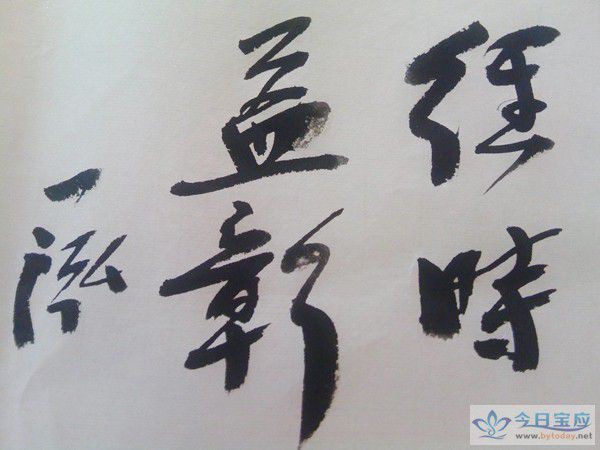 經時
益彰
一泓
今日宝应
www.bytoday.net